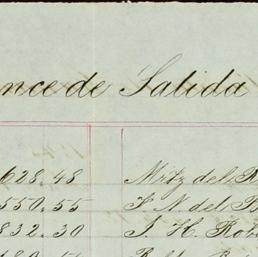 nce de Salida
628.48 Mrtz del R
550.55 F. N. del P
832.30 J. H. Rob